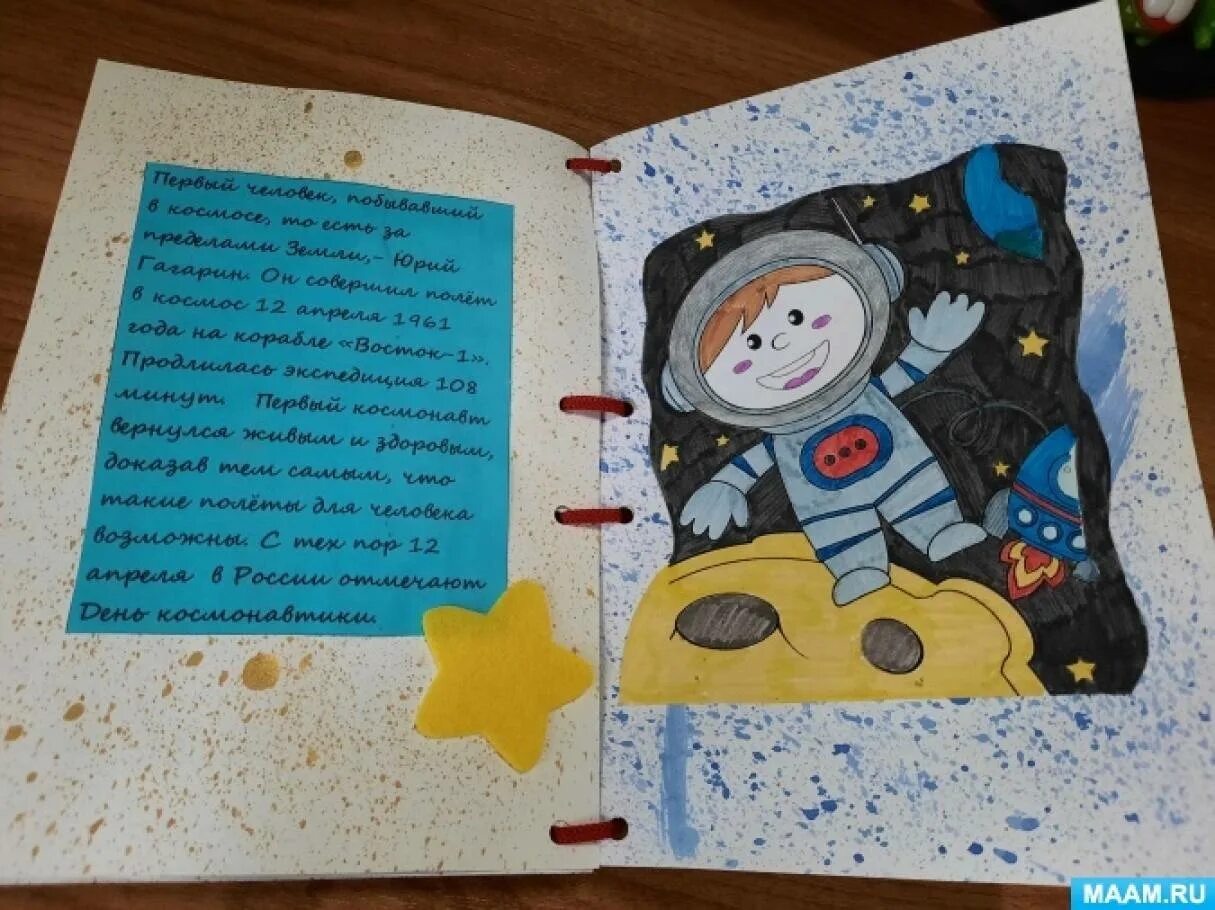 Первый человек, побывавший
в космосе, то есть за
пределами Земли,- Юрий
Гагарин. Он совершил полёт
в космос 12 апреля 1961
года на корабле «Восток-1».
Продлилась экспедиция 108
минут. Первый космонавт
вернулся живым и здоровым,
доказав тем самым, что
такие полёты для человека
возможны. С тех пор 12
апреля в России отмечают
День космонавтики.
MAAM.RU